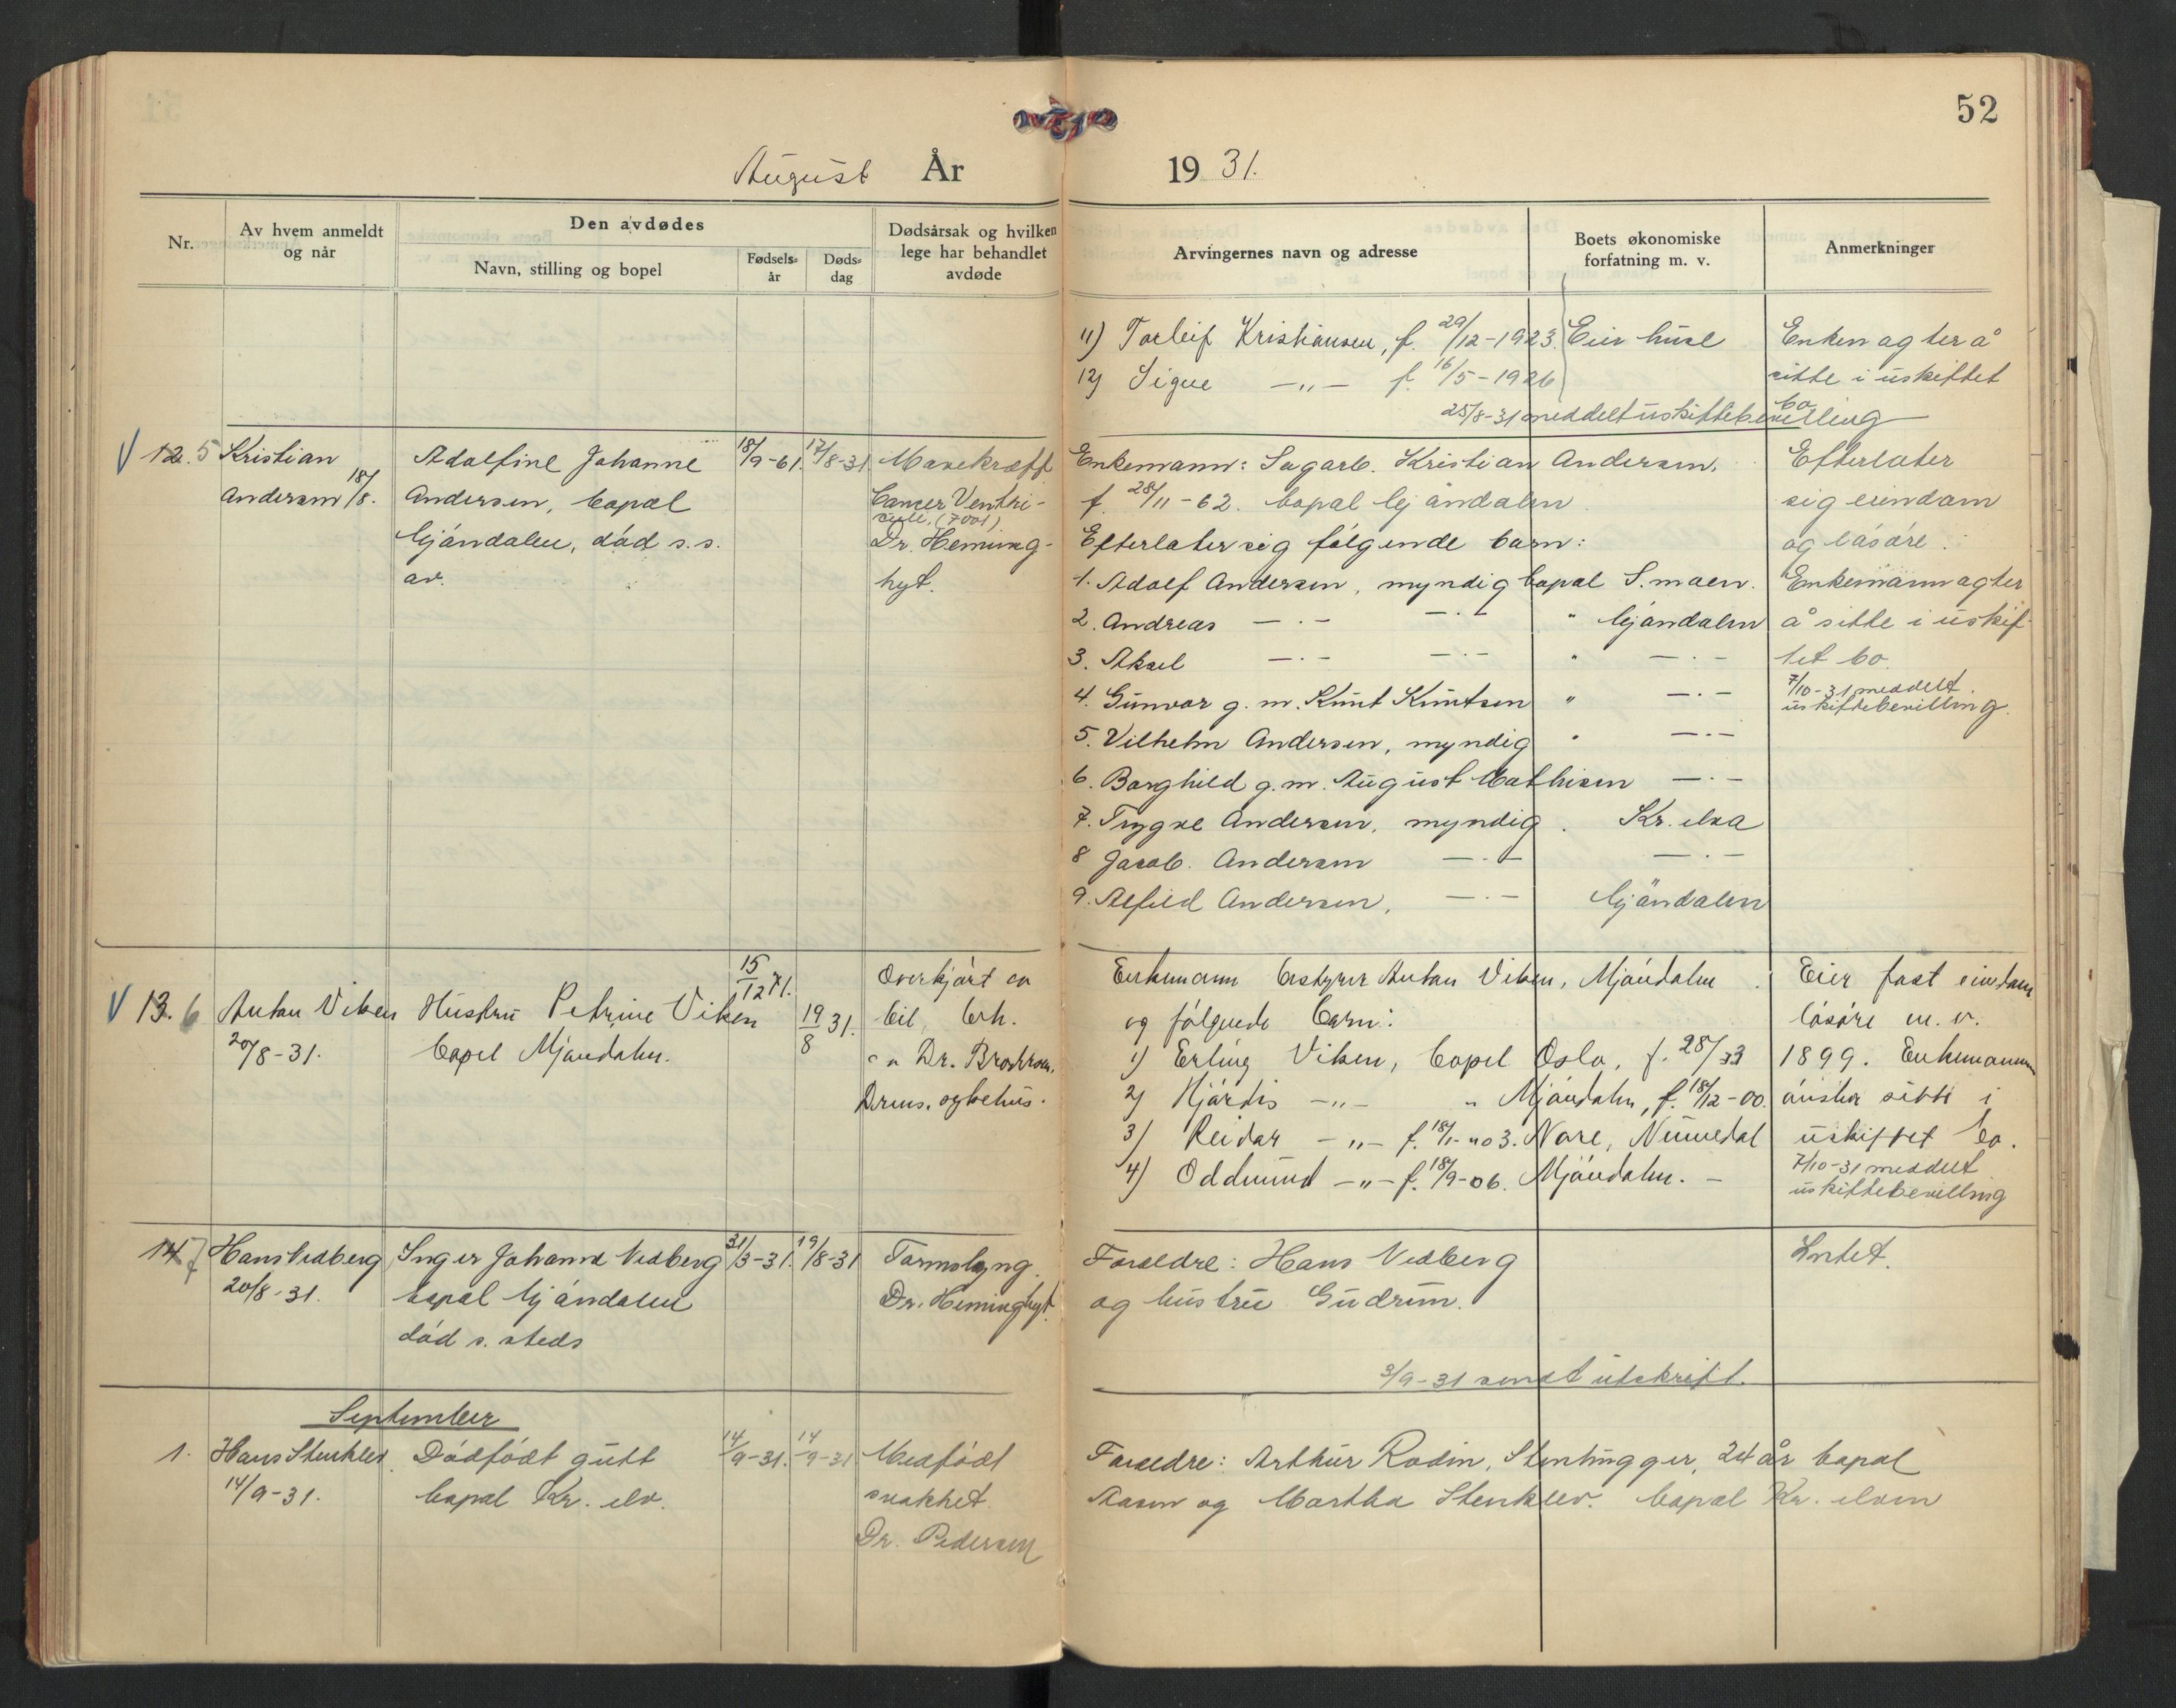 52
August År 1931.
Nr.
Av hvem anmeldt
og når
Den avdødes
Navn, stilling og bopel
Fødsels-
år
Døds-
dag
Dødsårsak og hvilken
lege har behandlet
avdøde
Arvingernes navn og adresse
Boets økonomiske
forfatning m. v.
Anmerkninger
11) Torleif Kristiansen, f. 29/12-1923. Eier huse
12) Signe -"- f. 16/5-1926
Enken agter å
sitte i uskiftet
bo
25/8-31 meddelt uskiftebevilling
12. 5 Kristian
Andersen 18/8.
Adolfine Johanne
Andersen, bopæl
Mjøndalen, død s.s.
av.
18/9-61. 17/8-31
Mavekræft
Cancer Ventri-
culi, (7001)
Dr. Heming-
hyt.
Enkemann: Sagarb. Kristian Andersen,
f. 28/11-62. bopæl Mjøndalen
Efterlater sig følgende barn:
1. Adolf Andersen, myndig bopæl S. moen.
2. Andreas -·- -·- " Mjøndalen
3. Aksel -·- -·- " -·-
4. Gunvor g. m. Knut Knutsen " -·-
5. Vilhelm Andersen, myndig " -·-
6. Borghild g. m. August Mathisen -·-
7. Trygve Andersen, myndig. Kr. elva
8 Jacob. Andersen -·- -·-
9. Alfild Andersen, -·- Mjøndalen
Efterlater
sig eiendom
og løsøre.
Enkemann agter
å sitte i uskif-
tet bo.
7/10-31 meddelt
uskiftebevilling.
13. 6 Anton Viken
20/8-31.
Hustru Petrine Viken
bopel Mjøndalen.
15/12 71.
19/8 31.
Overkjørt av
bil, beh.
av Dr.
Drms. sykehus.
Enkemann bestyrer Anton Viken, Mjøndalen.
og følgende barn:
1) Erling Viken, bopel Oslo, f. 28/
2) Hjørdis -"- " Mjøndalen, f. 18/12-00.
3) Reidar -"- f. 18/1-03. Nore, Numedal
4) Oddmund -"- f. 18/9-06. Mjøndalen. -
Eier fast eiendom
løsøre m. v.
1899. Enkemannen
ønsker sitte i
uskiftet bo.
7/10-31 meddelt
uskiftebevilling
14. 7 Hans Vedberg
20/8-31.
Inger Johanne Vedberg
bopæl Mjøndalen
død s. steds
31/3-31. 19/8-31
Tarmslyng.
Dr. Heminghyt.
Foreldre: Hans Vedberg
og hustru Gudrun.
Intet.
3/9-31 sendt utskrift.
September
1. Hans Stenklev
14/9-31.
Dødfødt gutt
bopæl Kr. elv.
14/9-31. 14/9-31
Medfødt
svakhet.
Dr. Pedersen
Foreldre: Arthur Rodin, Stenhugger, 24 år bopæl
Aasen og Martha Stenklev. bopæl Kr. elven